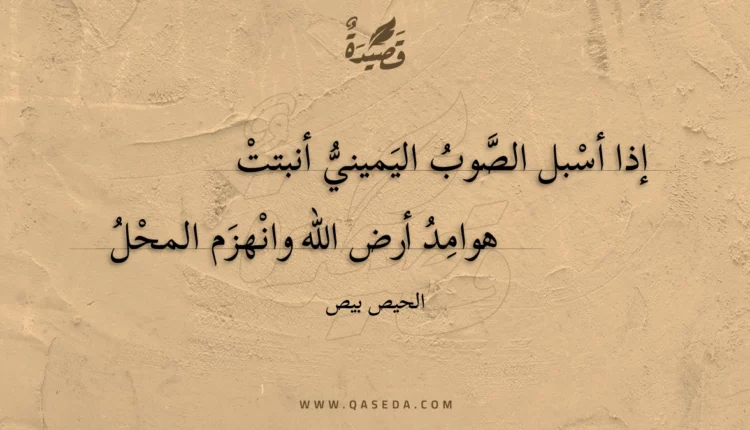 قَصِيدَةٌ
إذا أسْبل الصَّوبُ اليَمينيُّ أنبتتْ
هوامِدُ أرض الله وانْهزَم المحْلُ
الحيص بيص
WWW.QASEDA.COM